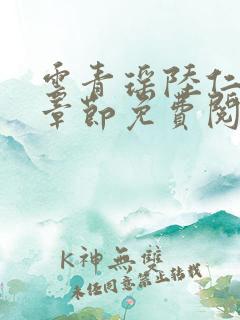 云青瑶陆仁
章节免费阅
K神無雙
未经同意禁止转载